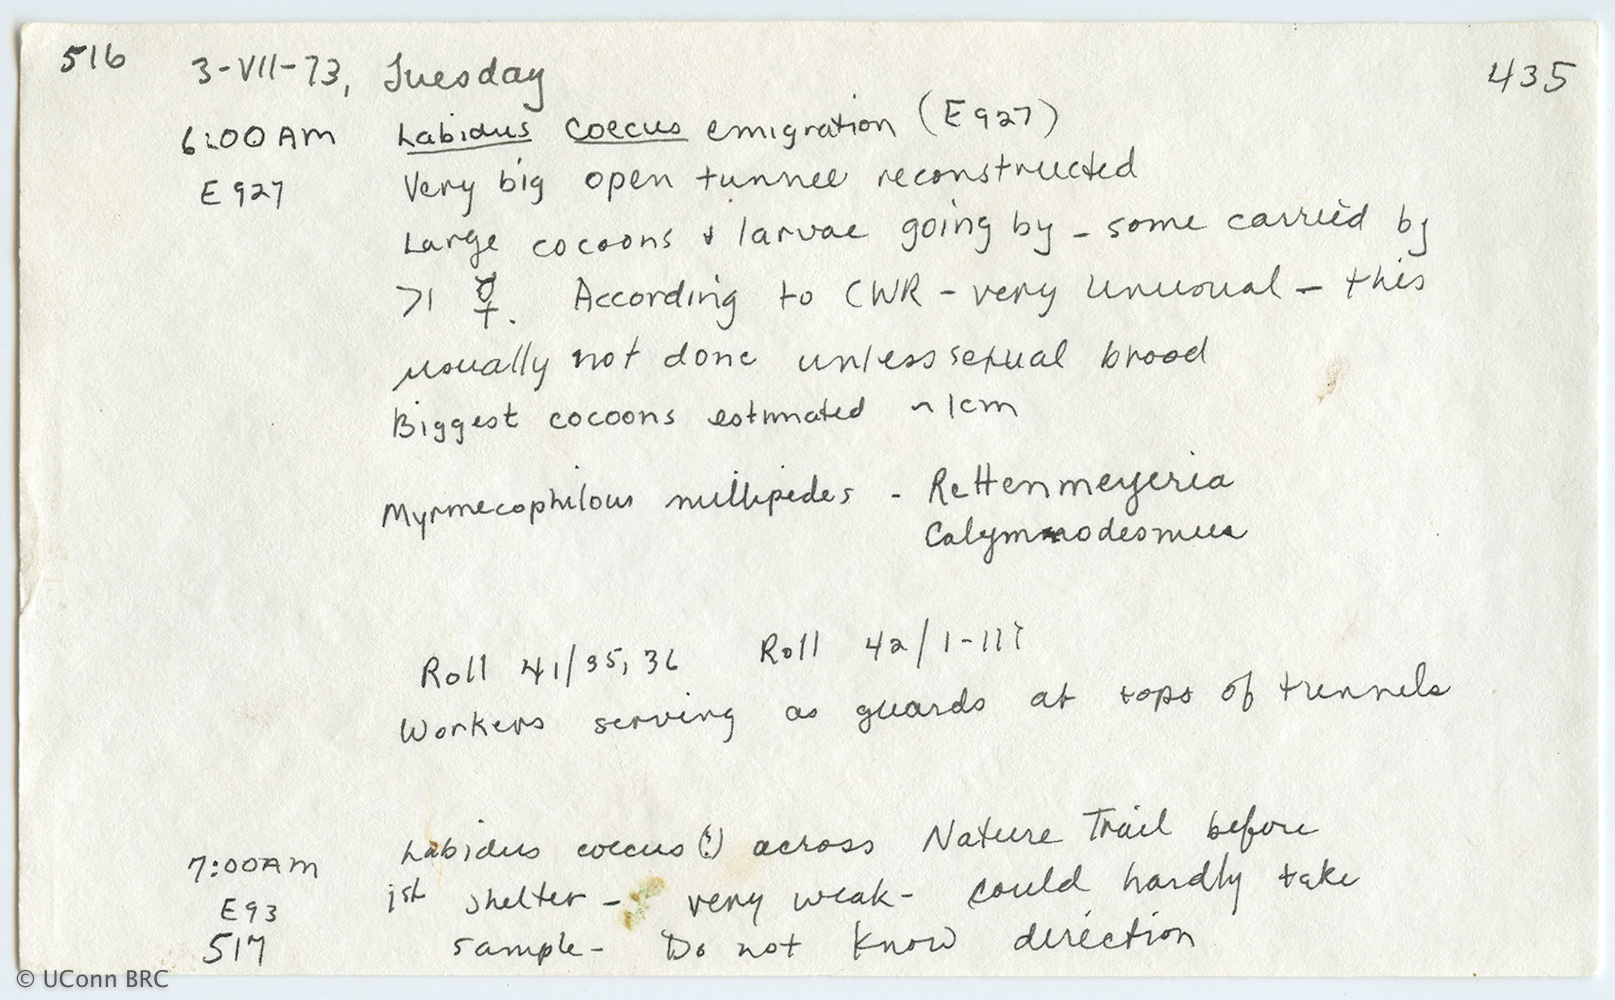 516
3-VII-73, Tuesday
435
6:00 AM Labidus coecus emigration (E927)
E 927 Very big open tunnel reconstructed
Large cocoons & larvae going by - some carried by
>1 ☿. According to CWR - very unusual - this
usually not done unless sexual brood
Biggest cocoons estimated ~ 1cm
Myrmecophilous millipedes - Rettenmeyeria
Calymmodesmus
Roll 41/35, 36 Roll 42/1-11?
Workers serving as guards at tops of tunnels
7:00AM Labidus coecus (?) across Nature Trail before
E93 1st shelter - very weak - could hardly take
517 sample - Do not know direction
© UConn BRC